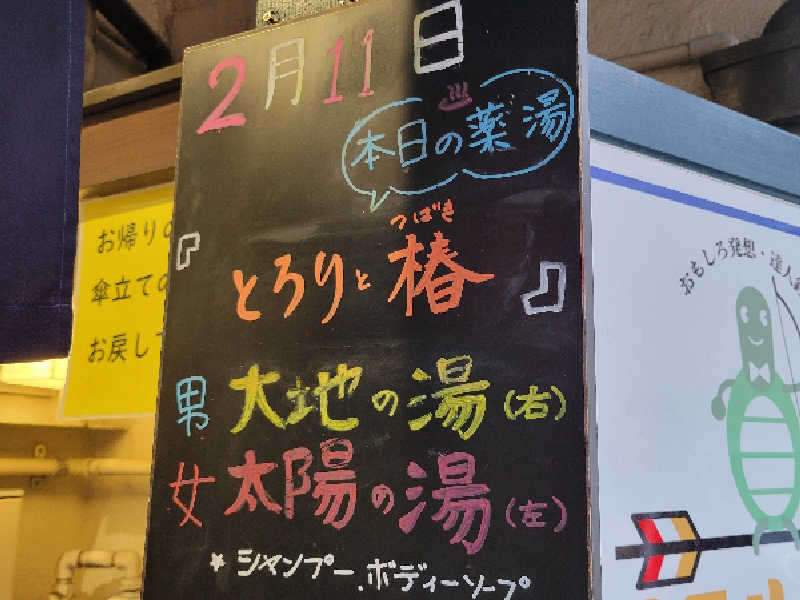 2月11日
本日の薬湯
つばき
『とろりと椿』
男 大地の湯(右)
女 太陽の湯(左)
* シャンプー、ボディーソープ
お帰り
傘立ての
お戻し
おもしろ発想・達人